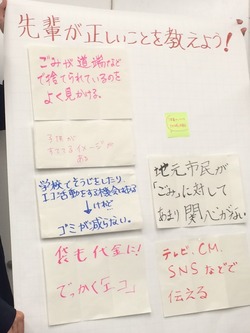 先輩が正しいことを教えよう!
ごみが道端など
で捨てられているのを
よく見かける。
子供が
すてるイメージが
ある
学校でそうじをしたり
エコ活動をする機会はある
けれど
ゴミが減らない。
地元市民が
「ごみ」に対して
あまり関心がない
袋も代金に!
でっかく「エコ」
テレビ、CM、
SNSなどで
伝える